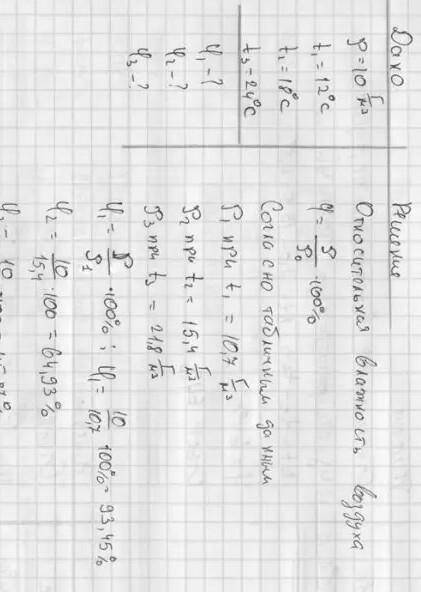 Дано
ρ = 10 г/м³
t₁ = 12°C
t₁ = 18°C
t₃ = 24°C
φ₁ - ?
φ₂ - ?
φ₃ - ?
Решение
Относительная влажность воздуха
φ = ρ/ρ₀ · 100%
Согласно табличным данным
ρ₁ при t₁ = 10,7 г/м³
ρ₂ при t₂ = 15,4 г/м³
ρ₃ при t₃ = 21,8 г/м³
φ₁ = ρ/ρ₁ · 100% ; φ₁ = 10/10,7 · 100% = 93,45%
φ₂ = 10/15,4 · 100 = 64,93%